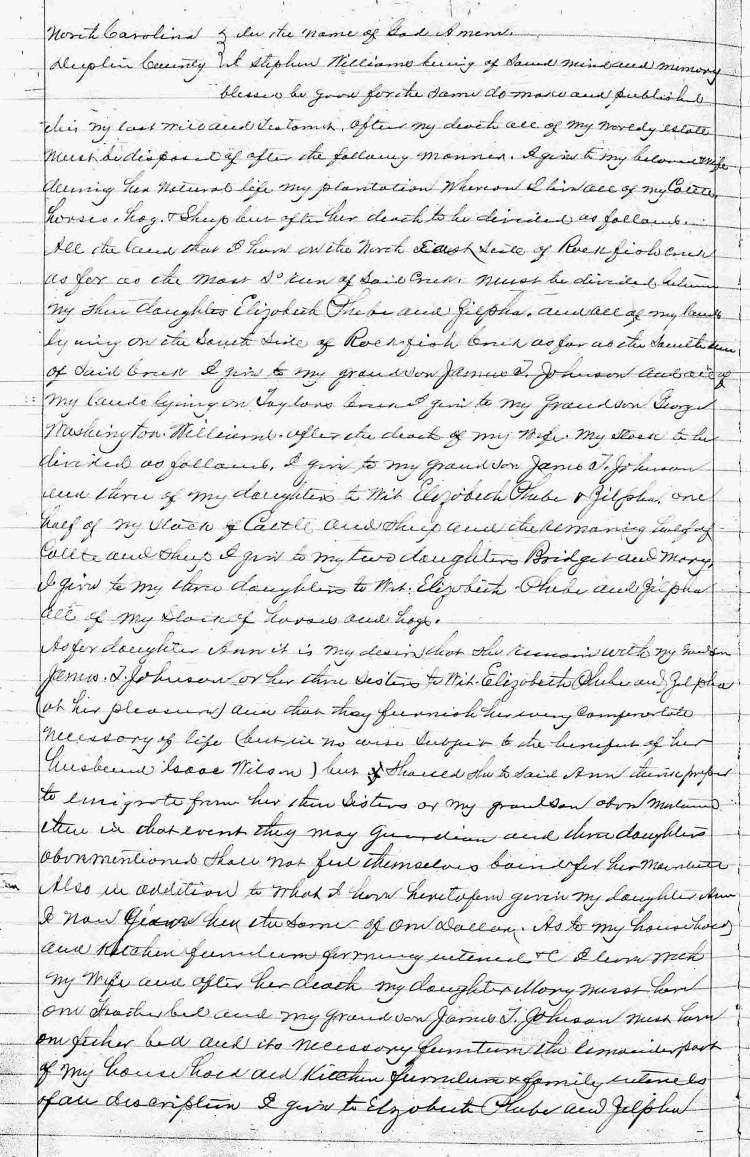 North Carolina } In the name of God Amen.
Duplin County } I Stephen Williams being of Sound mind and memory
blessed be good for the Same do make and publish
this my last Will and Testament. after my death all of my worldy estate
must be disposed of after the following manner. I give to my beloved Wife
during her natural life my plantation Whereon I live all of my Cattle,
horses, hogs & Sheep but after her death to be divided as follows.
All the land that I have on the North East Side of Rockfish creek
as far as the most So run of Said Creek. must be divided between
my three daughters Elizabeth Phebe and Zilpha. and all of my lands
lying on the South Side of Rockfish Creek as far as the South run
of Said Creek I give to my grandson James T. Johnson and all of
my lands lying on Taylors Creek I give to my Grandson George
Washington Williams. after the death of my Wife. My Stock to be
divided as follows. I give to my grandson James T. Johnson
and three of my daughters to Wit Elizabeth Phebe & Zilpha. one
half of my Stock of Cattle and Sheep and the remaning half of
Cattle and Sheep I give to my two daughters Bridget and Mary,
I give to my three daughters to Wit. Elizabeth Phebe and Zilpha
all of my Stock of horses and hogs.
As for daughter Ann it is my desire that She remain with my Grandson
James. T. Johnson or her three Sisters to Wit Elizabeth Phebe and Zilpha
(at her pleasure) and that they furnish her every
necessary of life (but in no wise Subject to the benefit of her
husband Isaac Wilson) but Should She to Said Ann prefer
to emigrate from her three Sisters or my grandson above
then in that event they my Guardian and three daughters
abovementioned Shall not feel themselves bound for her
Also in addition to What I have heretofore given my daughter Ann
I now give her the Some of One Dollar. As to my house hold
and Kitchen furniture farming utensels &C I leave With
my Wife and after her death my daughter Mary must have
one Feather bed and my grandson James T. Johnson must have
one fether bed and its necessary furniture the remainder part
of my house hold and Kitchen furniture & family utensels
of all discription I give to Elizabeth Phebe and Zilpha